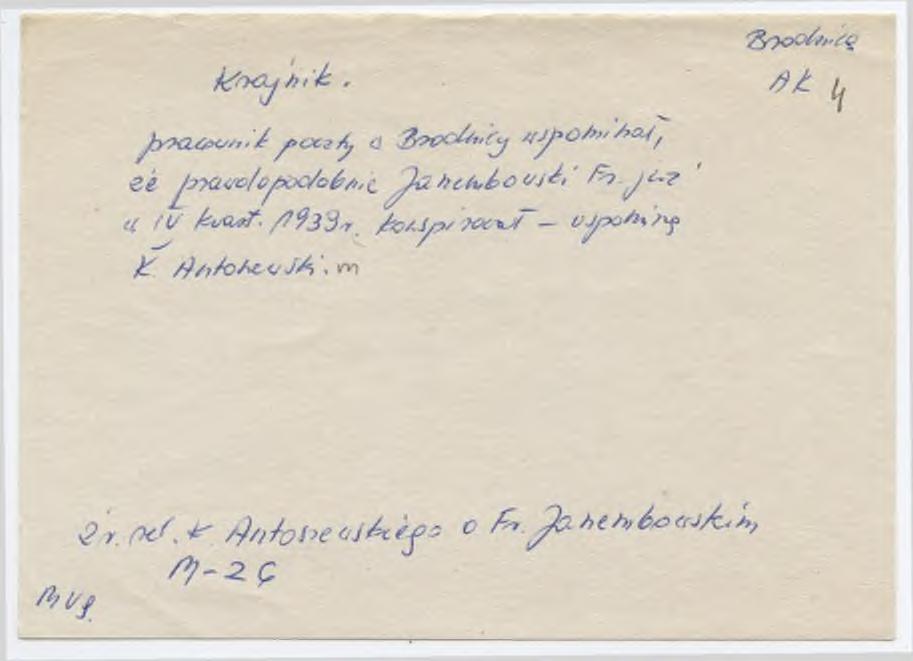 Brodnica
AK 4
Krajnik.
pracownik poczty w Brodnicy wspominał,
że prawdopodobnie Janembowski Fr. już
w IV kwart. 1939r. konspirował – wspomina
K. Antoszewski.m
Źr. rel. K. Antoszewskiego o Fr. Janembowskim
M-26